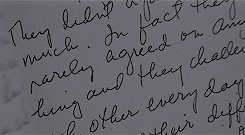 They didn't
much. In fact they
rarely agreed on any
thing and they challe
other every day
their diff